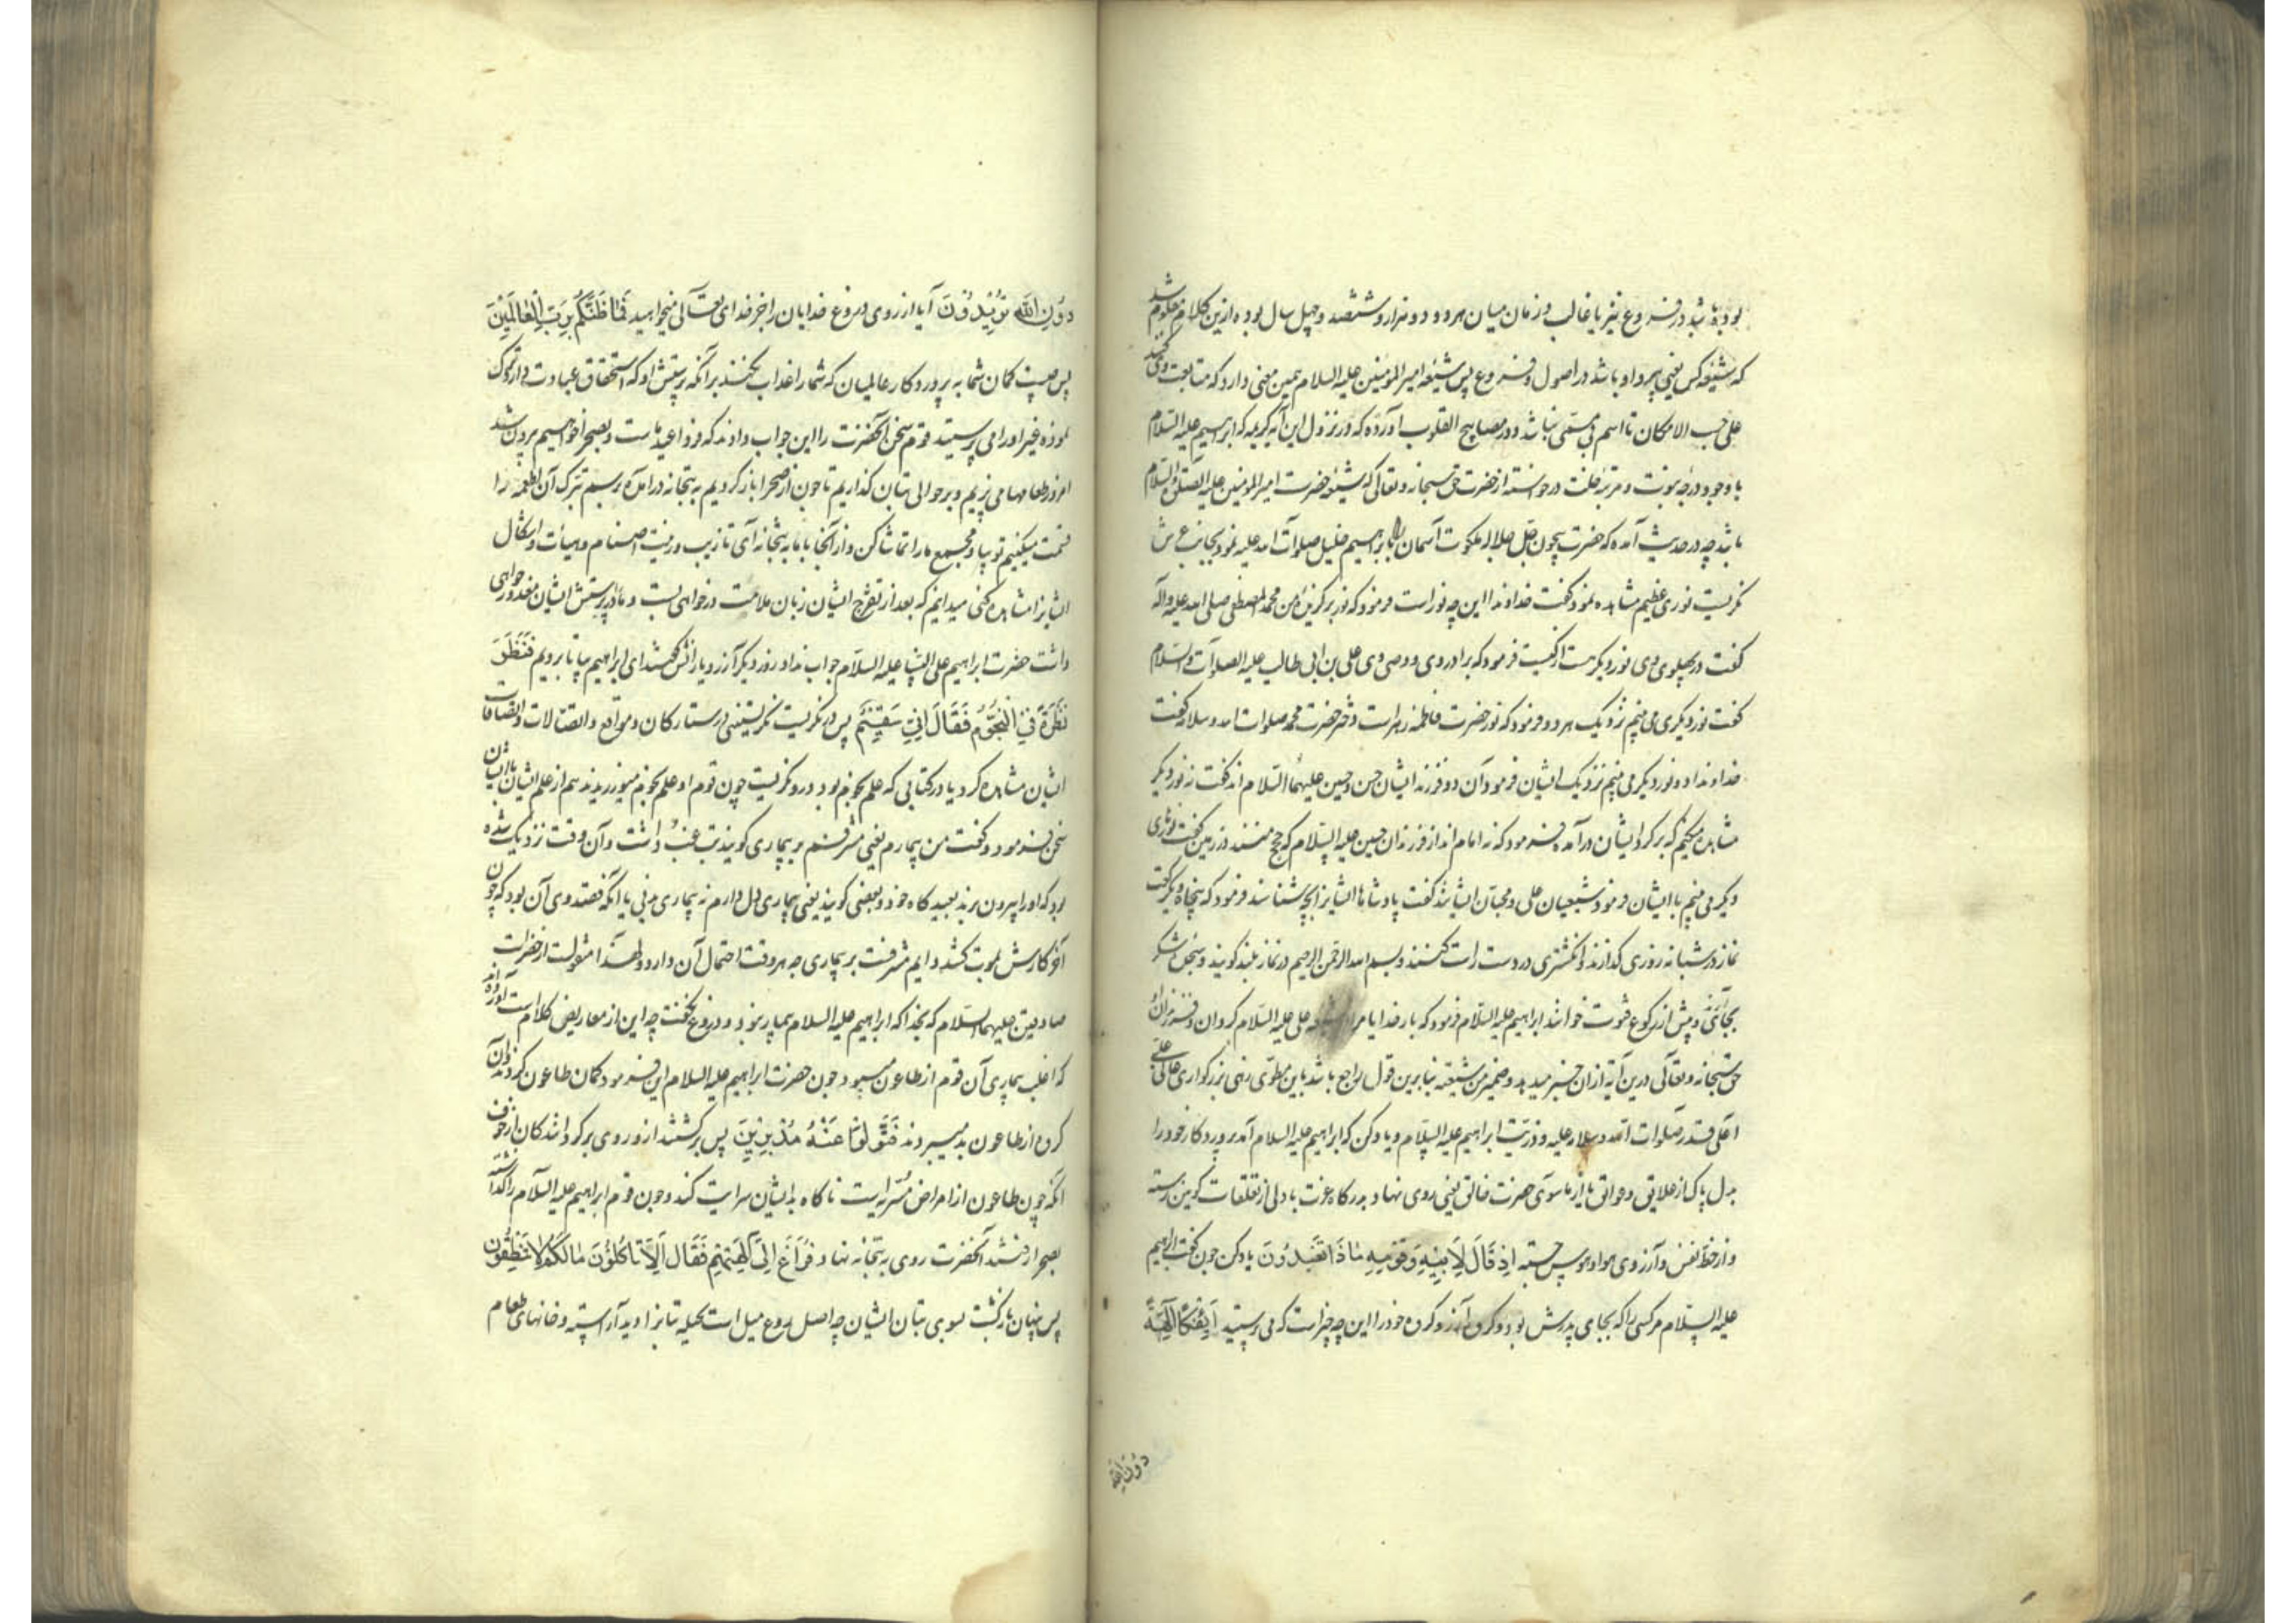 بوده باشد در فروع نیز یا غالب و زمان میان هر دو دو هزار و ششصد و چهل سال بوده ازین کلام معلوم شد
که شیعه کس یعنی پیرو او باشد در اصول و فروع پس شیعه امیرالمؤمنین علیه السلام همین معنی دارد که متابعت وی کند
علی حسب الامکان تا اسم بی مسمی نباشد و در مصابیح القلوب آورده که در نزول این آیه کریمه که ابراهیم علیه السلام
با وجود درجه نبوت و مرتبه خلت درخواسته از حضرت حق سبحانه و تعالی که شیعه حضرت امیرالمؤمنین علیه الصلوة والسلام
باشد چه در حدیث آمده که حضرت بیچون جل جلاله ملکوت آسمان را بابراهیم خلیل صلوات الله علیه نمود بجانب عرش
نگریست نوری عظیم مشاهده نمود گفت خداوندا این چه نور است فرمود که نور برگزیده من محمد المصطفی صلی الله علیه وآله
گفت در پهلوی وی نور دیگر هست از کیست فرمود که برادر وی و وصی وی علی بن ابی طالب علیه الصلوات والسلام
گفت نور دیگری می بینم نزدیک هر دو فرمود که نور حضرت فاطمه زهراست دختر حضرت محمد صلوات الله وسلامه گفت
خداوندا دو نور دیگر می بینم نزدیک ایشان فرمود آن دو فرزند ایشان حسن و حسین علیهما السلام اند گفت نه نور دیگر
مشاهده میکنم که برگرد ایشان درآمده فرمود که نه امام اند از فرزندان حسین علیه السلام که حجج منند در زمین گفت نورهای
دیگر می بینم با ایشان فرمود شیعیان علی و محبان ایشانند گفت پادشاها ایشانرا بچه شناسند فرمود که پنجاه و یکرکعت
نماز در شبانه روزی گذارند و انگشتری در دست راست کنند و بسم الله الرحمن الرحیم در نماز بلند گویند و سجده شکر
بجا آرند و پیش از رکوع قنوت خوانند ابراهیم علیه السلام فرمود که بار خدایا مرا شیعه علی علیه السلام گردان و فرزندان
حق سبحانه و تعالی درین آیه ازان خبر میدهد و ضمیر من شیعته بنابرین قول راجع باشد باین مطوی زهی بزرگواری عالی
اعلی قدر صلوات الله وسلامه علیه و ذریت ابراهیم علیه السلام و یاد کن که ابراهیم علیه السلام آمد پروردگار خود را
بدل پاک از علایق و عوایق یا از ما سوی حضرت خالق یعنی روی نهاد بدرگاه عزت با دلی از تعلقات کونین رسته
و از حظ نفس و آرزوی هوا و هوس جسته اِذ قَالَ لِاَبیهِ وَقَومِهِ مَاذَا تَعبُدُونَ یاد کن چون گفت ابراهیم
علیه السلام مر کسی را که بجای پدرش بود و کروه خود را این چه چیز است که می پرستید اَئِفکًا اٰلِهَةً
دون الله
دُونَ اللهِ تُرِیدُونَ آیا از روی دروغ خدایان را بجز خدای تعالی میخواهید فَمَا ظَنُّکُم بِرَبِّ العَالَمِینَ
پس چیست گمان شما به پروردگار عالمیان که شما را عذاب نکنند برآنکه پرستش او که استحقاق عبادت دارد ترک
نموده غیر او را می پرستید قوم سخن آنحضرت را این جواب دادند که فردا عید ماست و بصحرا خواهیم برون شد
امروز طعامها می پزیم و بر حوالی بتان گذاریم تا چون از صحرا باز گردیم به بتخانه درآمده برسم تبرک آن اطعمه را
قسمت میکنیم تو بیا و مجمع ما را تماشا کن و از آنجا با ما به بتخانه آی تا زیب و زینت اصنام و هیأت و اشکال
ایشانرا مشاهده کنی میدانیم که بعد از تفرج ایشان زبان ملامت درخواهی بست و ما را در پرستش ایشان معذور خواهی
داشت حضرت ابراهیم علی نبینا علیه السلام جواب نداد روز دیگر آزر و یارانش گفتند ای ابراهیم بیا تا برویم فَنَظَرَ
نَظرَةً فِی النُّجُومِ فَقَالَ اِنِّی سَقِیمٌ پس در نگریست نگریستنی در ستارگان و مواقع و اتصالات و انصرافات
ایشان مشاهده کرد یا در کتابی که علم نجوم بود درو نگریست چون قوم او علم نجوم میورزیدند هم از علم ایشان باایشان
سخن فرمود و گفت من بیمارم یعنی مشرفم بر بیماری گویند تب غب داشت و آن وقت نزدیک شده
بود که او را بیرون برند بعیدگاه خود و بعضی گویند یعنی بیماری دل دارم نه بیماری بدنی یا آنکه قصد وی آن بود که چون
آخر کارش بموت کشد دایم مشرفست بر بیماری چه هر وقت احتمال آن دارد و لهذا منقولست از حضرات
صادقین علیهما السلام که بخدا که ابراهیم علیه السلام بیمار نبود و دروغ نگفت چه این از معاریض کلام است آورده اند
که اغلب بیماری آن قوم از طاعون میبود چون حضرت ابراهیم علیه السلام این فرمود گمان طاعون کردند و آن
کروه از طاعون بد میبردند فَتَوَلَّوا عَنهُ مُدبِرِینَ پس برگشتند ازو روی برگردانندگان از خوف
آنکه چون طاعون از امراض مسریه است ناگاه بایشان سرایت کند و چون قوم ابراهیم علیه السلام را گذاشته
بصحرا رفتند آنحضرت روی به بتخانه نهاد فَرَاغَ اِلٰی اٰلِهَتِهِم فَقَالَ اَلَا تَاکُلُونَ مَالَکُم لَا تَنطِقُونَ
پس پنهان بازگشت بسوی بتان ایشان چه اصل روغ میل است بحیله بتانرا دید آراسته و خانهای طعام